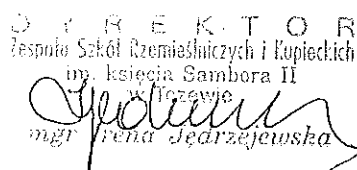 DYREKTOR
Zespołu Szkół Rzemieślniczych i Kupieckich
im. księcia Sambora II
w Tczewie
mgr Irena Jędrzejewska